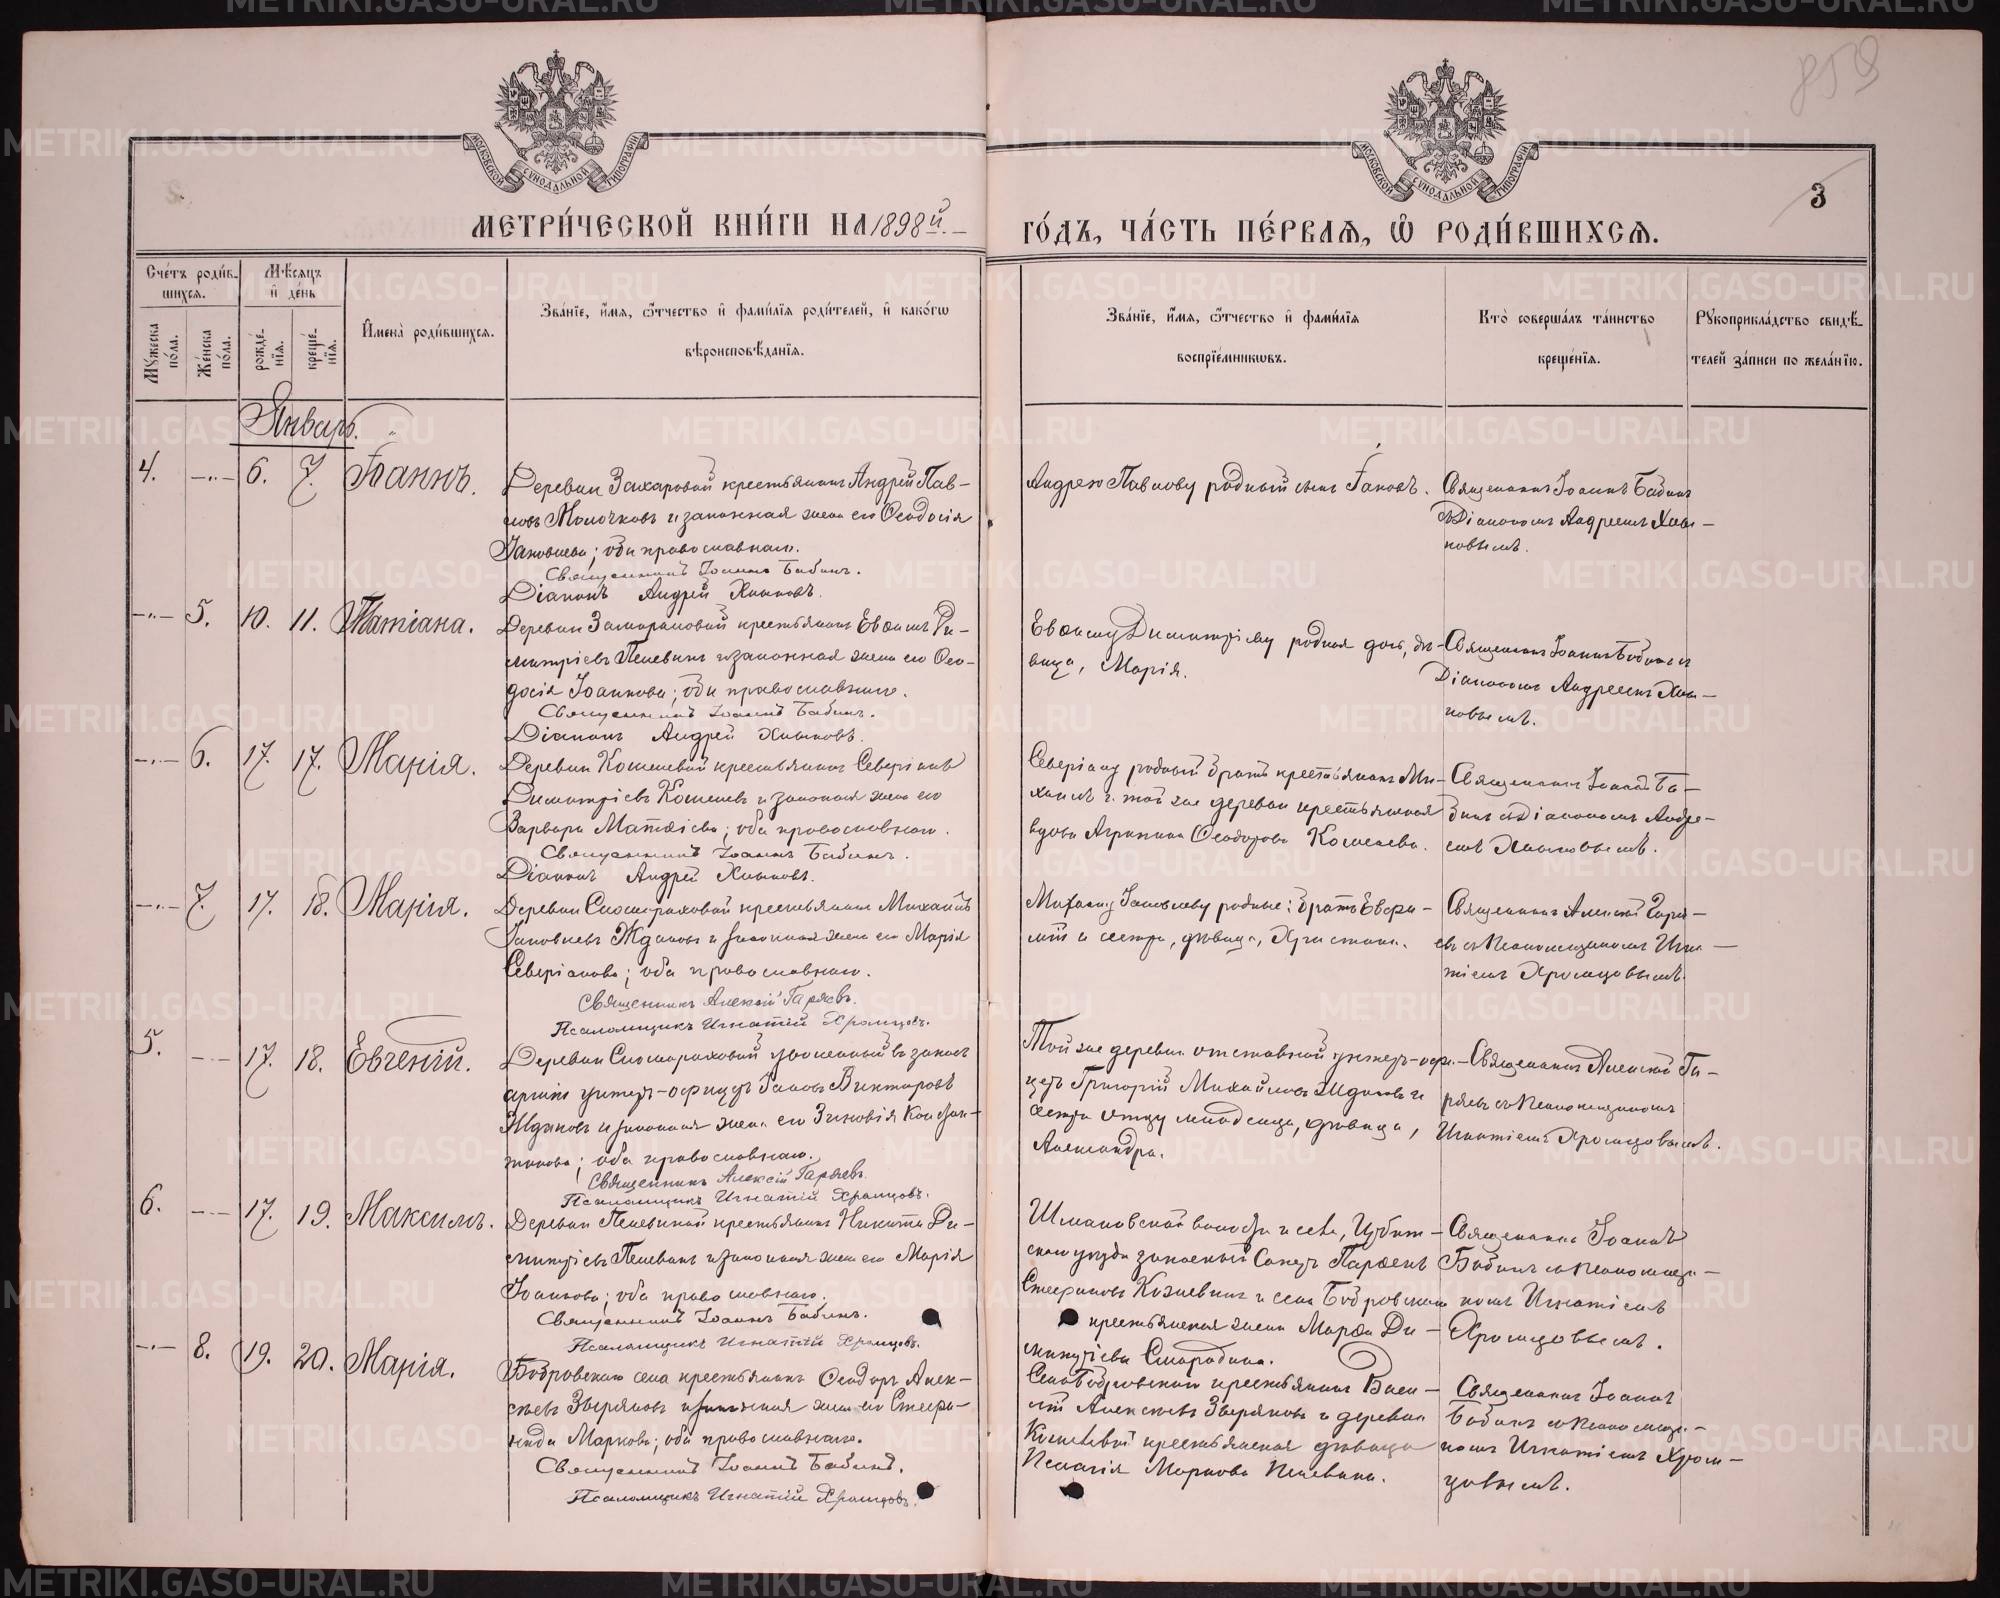 859
3
МОСКОВСКОЙ СѴНОДАЛЬНОЙ ТИПОГРАФІИ
МОСКОВСКОЙ СѴНОДАЛЬНОЙ ТИПОГРАФІИ
МЕТРИ́ЧЕСКОЙ КНИ́ГИ НА 1898й.
ГО́ДЪ, ЧА́СТЬ ПЕ́РВАЯ, Ѽ РОДИ́ВШИХСЯ.
Сче́тъ роди́в-
шихся.
Мѣ́сяцъ
и҆ де́нь
Мꙋ́жеска по́ла.
Же́нска по́ла.
рожде́-
нїѧ.
креще́-
нїѧ.
И҆мена̀ роди́вшихся.
Зва́нїе, и҆́мѧ, ѻ҆́тчество и҆ фами́лїѧ роди́телей, и҆ како́гѡ
вѣроисповѣ́данїѧ.
Зва́нїе, и҆́мѧ, ѻ҆́тчество и҆ фами́лїѧ
воспрїе́мникѡвъ.
Кто̀ соверша́лъ та́инство
креще́нїѧ.
Рꙋкоприкла́дство свидѣ́-
телей за́писи по жела́нїю.
Январь.
4. -"- 6. 7. Іоаннъ.
Деревни Захаровой крестьянинъ Андрей Пав-
ловъ Молочковъ и законная жена его Ѳеодосія
Яковлева; оба православнаго.
Священникъ Іоаннъ Бабинъ.
Діаконъ Андрей Хлыновъ.
Андрею Павлову родный сынъ Іаковъ.
Священникъ Іоаннъ Бабинъ
съ Діакономъ Андреемъ Хлы-
новымъ.
-"- 5. 10. 11. Татіана.
крестьянинъ Евѳимъ Ди-
митріевъ Пелевинъ и законная жена его Ѳео-
досія Іоаннова; оба православнаго.
Священникъ Іоаннъ Бабинъ.
Діаконъ Андрей Хлыновъ.
Евѳиму Димитріеву родная дочь, дѣ-
вица, Марія.
Священникъ Іоаннъ Бабинъ съ
Діакономъ Андреемъ Хлы-
новымъ.
-"- 6. 17. 17. Марія.
Деревни Кошелевой крестьянинъ Северіанъ
Димитріевъ Кошелевъ и законная жена его
Варвара Матѳіева; оба православнаго.
Священникъ Іоаннъ Бабинъ.
Діаконъ Андрей Хлыновъ.
Северіану родный братъ крестьянинъ Ми-
хаилъ и той же деревни крестьянская
вдова Агрипина Ѳеодорова Кошелева.
Священникъ Іоаннъ Ба-
бинъ съ Діакономъ Андре-
емъ Хлыновымъ.
-"- 7. 17. 18. Марія.
крестьянинъ Михаилъ
Яковлевъ Ждановъ и законная жена его Марія
Северіанова; оба православнаго.
Священникъ Алексій Гаряевъ.
Псаломщикъ Игнатій Храмцовъ.
Михаилу Яковлеву родные: братъ
и сестра, дѣвица, Христина.
Священникъ Алексій Гаря-
евъ съ Псаломщикомъ Игна-
тіемъ Храмцовымъ.
5. -"- 17. 18. Евгеній.
уволенный въ запасъ
арміи унтеръ-офицеръ Іаковъ Викторовъ
Ждановъ и законная жена его Зиновія Констан-
тинова; оба православнаго.
Священникъ Алексій Гаряевъ.
Псаломщикъ Игнатій Храмцовъ.
Той же деревни отставной унтеръ-офи-
церъ Григорій Михайловъ Ждановъ и
сестра отцу младенца, дѣвица,
Александра.
Священникъ Алексій Га-
ряевъ съ Псаломщикомъ
Игнатіемъ Храмцовымъ.
6. -"- 17. 19. Максимъ.
Деревни Пелевиной крестьянинъ Никита Ди-
митріевъ Пелевинъ и законная жена его Марія
Іоаннова; оба православнаго.
Священникъ Іоаннъ Бабинъ.
Псаломщикъ Игнатій Храмцовъ.
Шмаковской волости и села, Ирбит-
скаго уѣзда запасный Парѳенъ
Стефановъ и села Бобровскаго
крестьянская жена Марѳа Ди-
митріева Смородина.
Священникъ Іоаннъ
Бабинъ съ Псаломщи-
комъ Игнатіемъ
Храмцовымъ.
-"- 8. 19. 20. Марія.
Бобровскаго села крестьянинъ Ѳеодоръ Алек-
сѣевъ Звѣряковъ и законная жена его Стефа-
нида Маркова; оба православнаго.
Священникъ Іоаннъ Бабинъ.
Псаломщикъ Игнатій Храмцовъ.
Села Бобровскаго крестьянинъ Васи-
лій Алексѣевъ Звѣряковъ и деревни
Кошелевой крестьянская дѣвица
Пелагія Маркова Пелевина.
Священникъ Іоаннъ
Бабинъ съ Псаломщи-
комъ Игнатіемъ Храм-
цовымъ.
METRIKI.GASO-URAL.RU